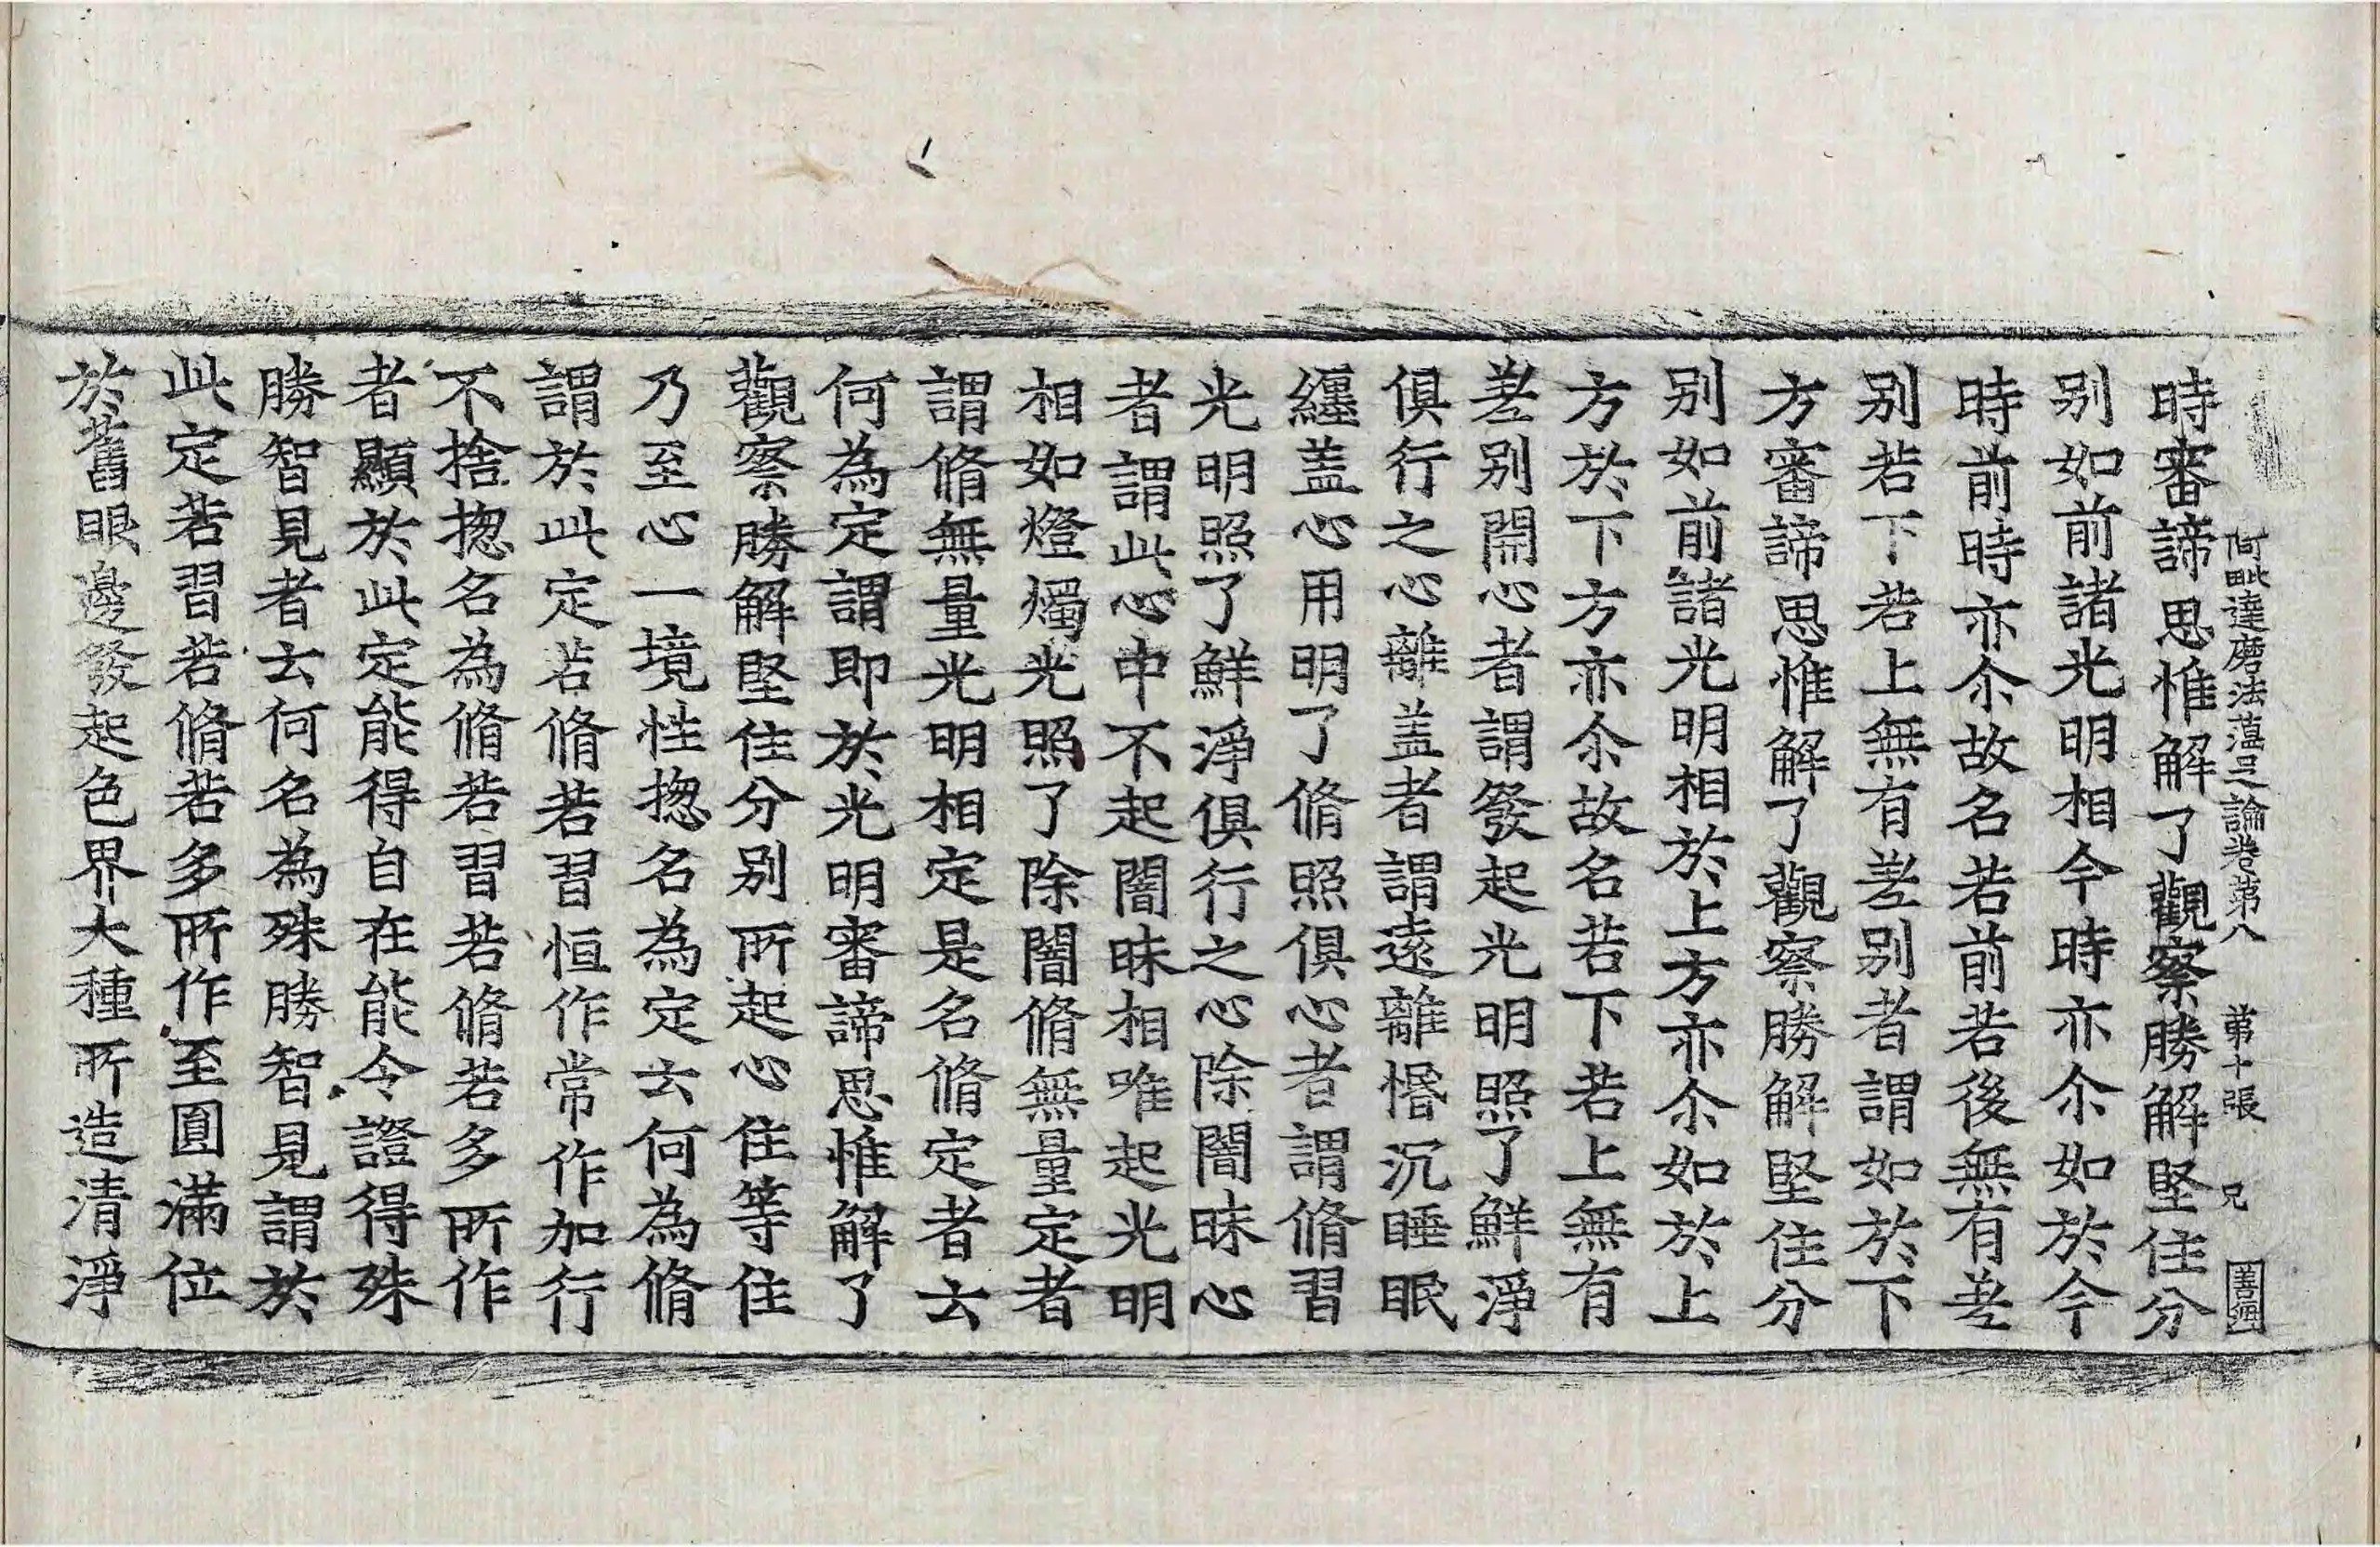 阿毗達磨法蕴足論卷第八　第十張　兄
時審諦思惟解了觀察勝解堅住分
别如前諸光明相今時亦尒如於今
時前時亦尒故名若前若後無有差
别若下若上無有差别者謂如於下
方審諦思惟解了觀察勝解堅住分
别如前諸光明相於上方亦尒如於上
方於下方亦尒故名若下若上無有
差别開心者謂發起光明照了鮮淨
俱行之心離盖者謂遠離惛沉睡眠
纏盖心用明了脩照俱心者謂脩習
光明照了鮮淨俱行之心除闇昧心
者謂此心中不起闇昧相唯起光明
相如燈燭光照了除闇脩無量定者
謂脩無量光明相定是名脩定者云
何為定謂即於光明審諦思惟解了
觀察勝解堅住分别所起心住等住
乃至心一境性揔名為定云何為脩
謂於此定若脩若習恒作常作加行
不捨揔名為脩若習若脩若多所作
者顯於此定能得自在能令證得殊
勝智見者云何名為殊勝智見謂於
此定若習若脩若多所作至圓滿位
於舊眼邊發起色界大種所造清淨